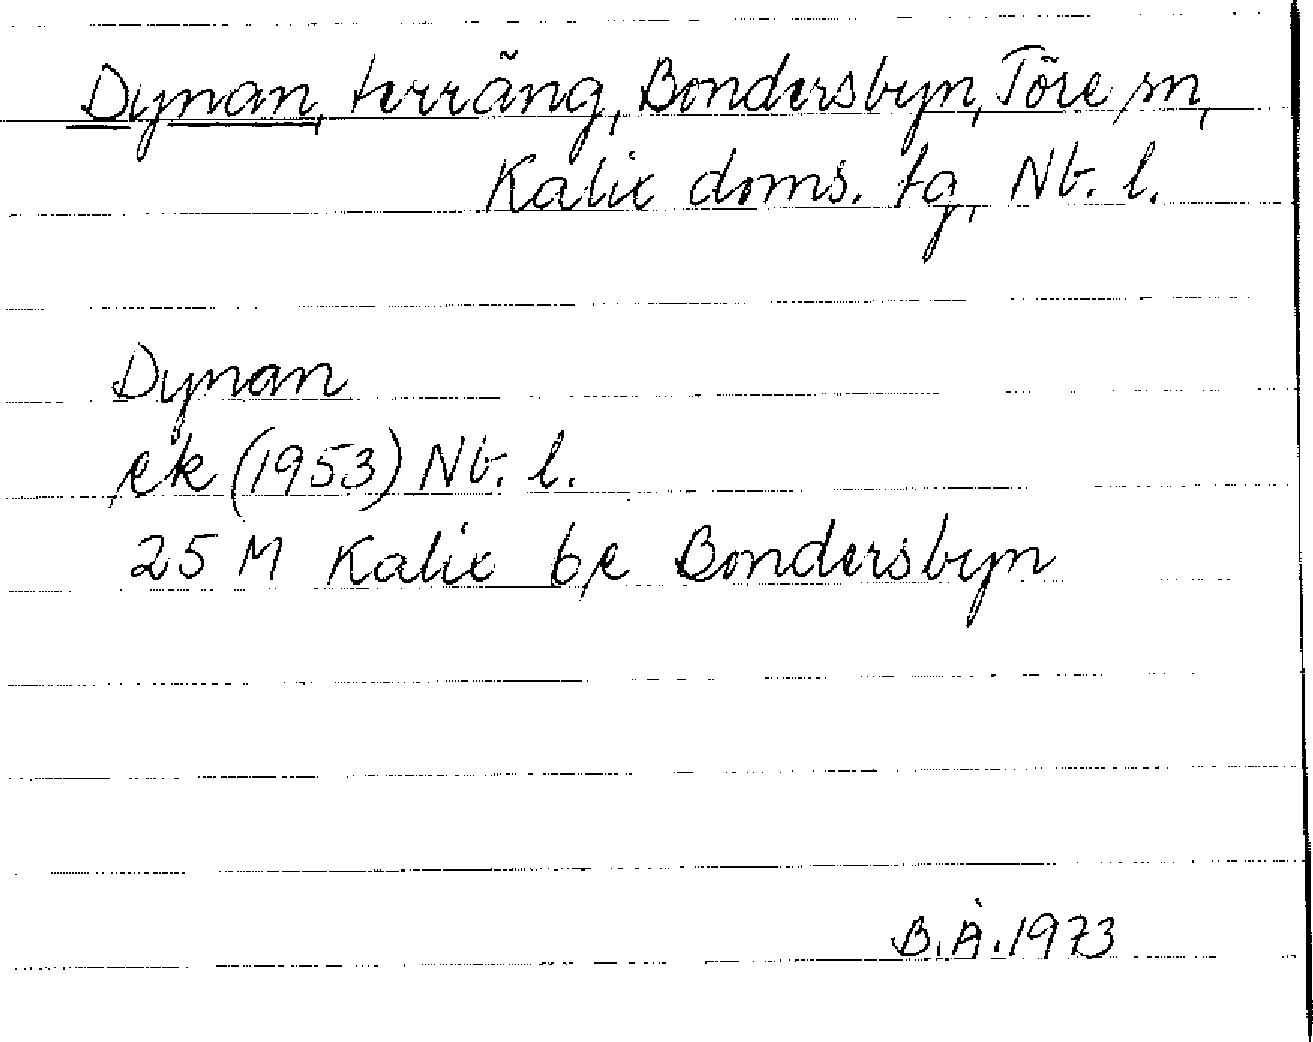 Dynan, terräng, Bondersbyn, Töre sn,
Kalix doms. tg, Nb. l.
Dynan
ek (1953) Nb. l.
25 M Kalix 6e Bondersbyn
B.Å.1973